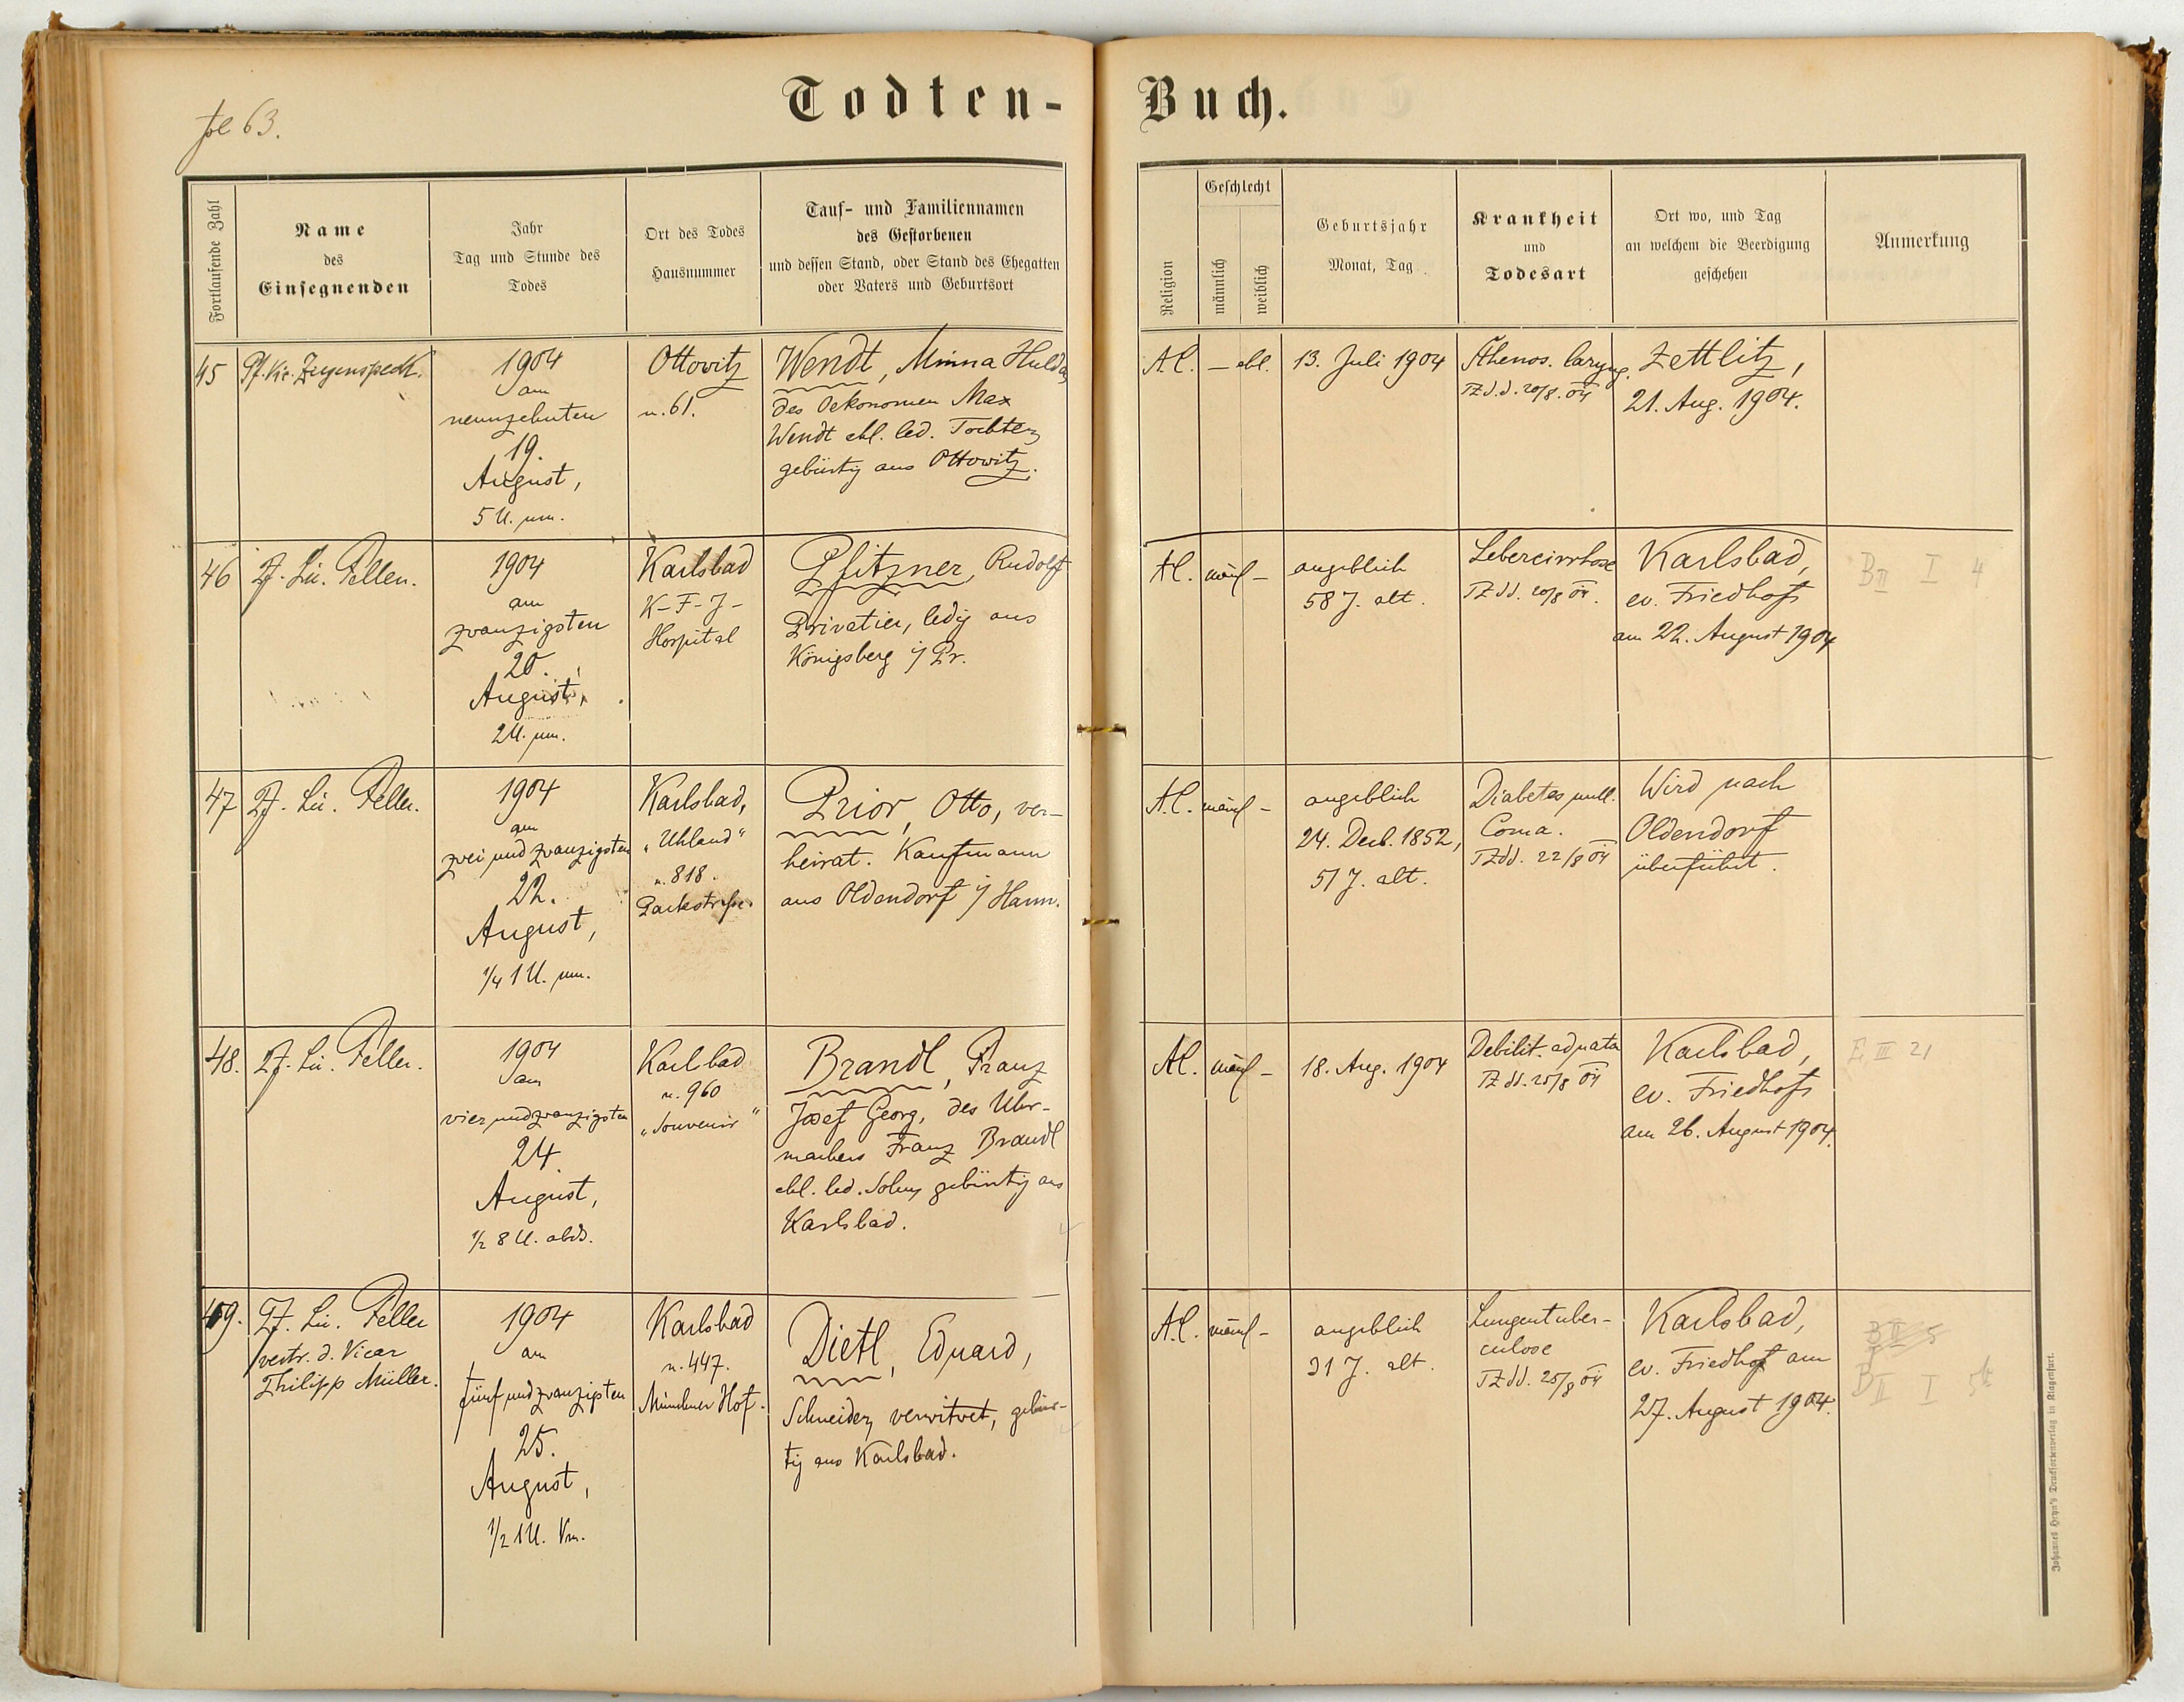 fol 63.
Todten-Buch.
Fortlaufende Zahl
Name
des
Einsegnenden
Jahr
Tag und Stunde des
Todes
Ort des Todes
Hausnummer
Tauf- und Familiennamen
des Gestorbenen
und dessen Stand, oder Stand des Ehegatten
oder Vaters und Geburtsort
Religion
Geschlecht
männlich
weiblich
Geburtsjahr
Monat, Tag
Krankheit
und
Todesart
Ort wo, und Tag
an welchem die Beerdigung
geschehen
Anmerkung
45
Pf. Vic.
1904
am
neunzehnten
19.
August,
5 U. nm.
Ottowitz
n. 61.
Wendt, Minna Hulda,
des Oekonomen Max
Wendt ehl. led. Tochter,
gebürtig aus Ottowitz.
A.C.
—
13. Juli 1904
Sthenos. laryng.
TZ d.d. 20/8. 04
Zettlitz,
21. Aug. 1904.
46
Pf. Lic. Feller.
1904
am
zwanzigsten
20.
August,
2 U. nm.
Karlsbad
K-F-J-
Hospital
Pfitzner, Rudolf
Privatier, ledig aus
Königsberg i/Pr.
A.C.
männl –
angeblich
58 J. alt.
Lebercirrhose
TZ dd. 20/8 04.
Karlsbad,
ev. Friedhof,
am 22. August 1904
B II I 4
47
Pf. Lic. Feller.
1904
am
zwei und zwanzigsten
22.
August,
1/4 1 U. nm.
Karlsbad,
„Uhland“
n. 818.
Parkstraße.
Prior, Otto, ver-
heirat. Kaufmann
aus Oldendorf i/Hann.
A.C.
männl –
angeblich
24. Dec. 1852,
51 J. alt.
Diabetes mell.
Coma.
TZ dd. 22/8 04
Wird nach
Oldendorf
überführt.
48.
Pf. Lic. Feller.
1904
am
vier und zwanzigsten
24.
August,
1/2 8 U. abds.
Karlsbad
n. 960
„Souvenir“
Brandl, Franz
Josef Georg, des Uhr-
machers Franz Brandl
ehl. led. Sohn, gebürtig aus
Karlsbad.
A.C.
männl –
18. Aug. 1904
Debilit. adnata
TZ dd. 25/8 04
Karlsbad,
ev. Friedhof,
am 26. August 1904.
E III 21
49.
Pf. Lic. Feller
vertr. d. Vicar
Philipp Müller.
1904
am
fünf und zwanzigsten
25.
August,
1/2 1 U. Vm.
Karlsbad
n. 447.
Münchner Hof.
Dietl, Eduard,
Schneider, verwitwet, gebür-
tig aus Karlsbad.
A.C.
männl –
angeblich
31 J. alt.
Lungentuber-
culose
TZ dd. 25/8 04
Karlsbad,
ev. Friedhof am
27. August 1904.
B II 5
B II I
Johannes Heyn's Drucksortenverlag in Klagenfurt.